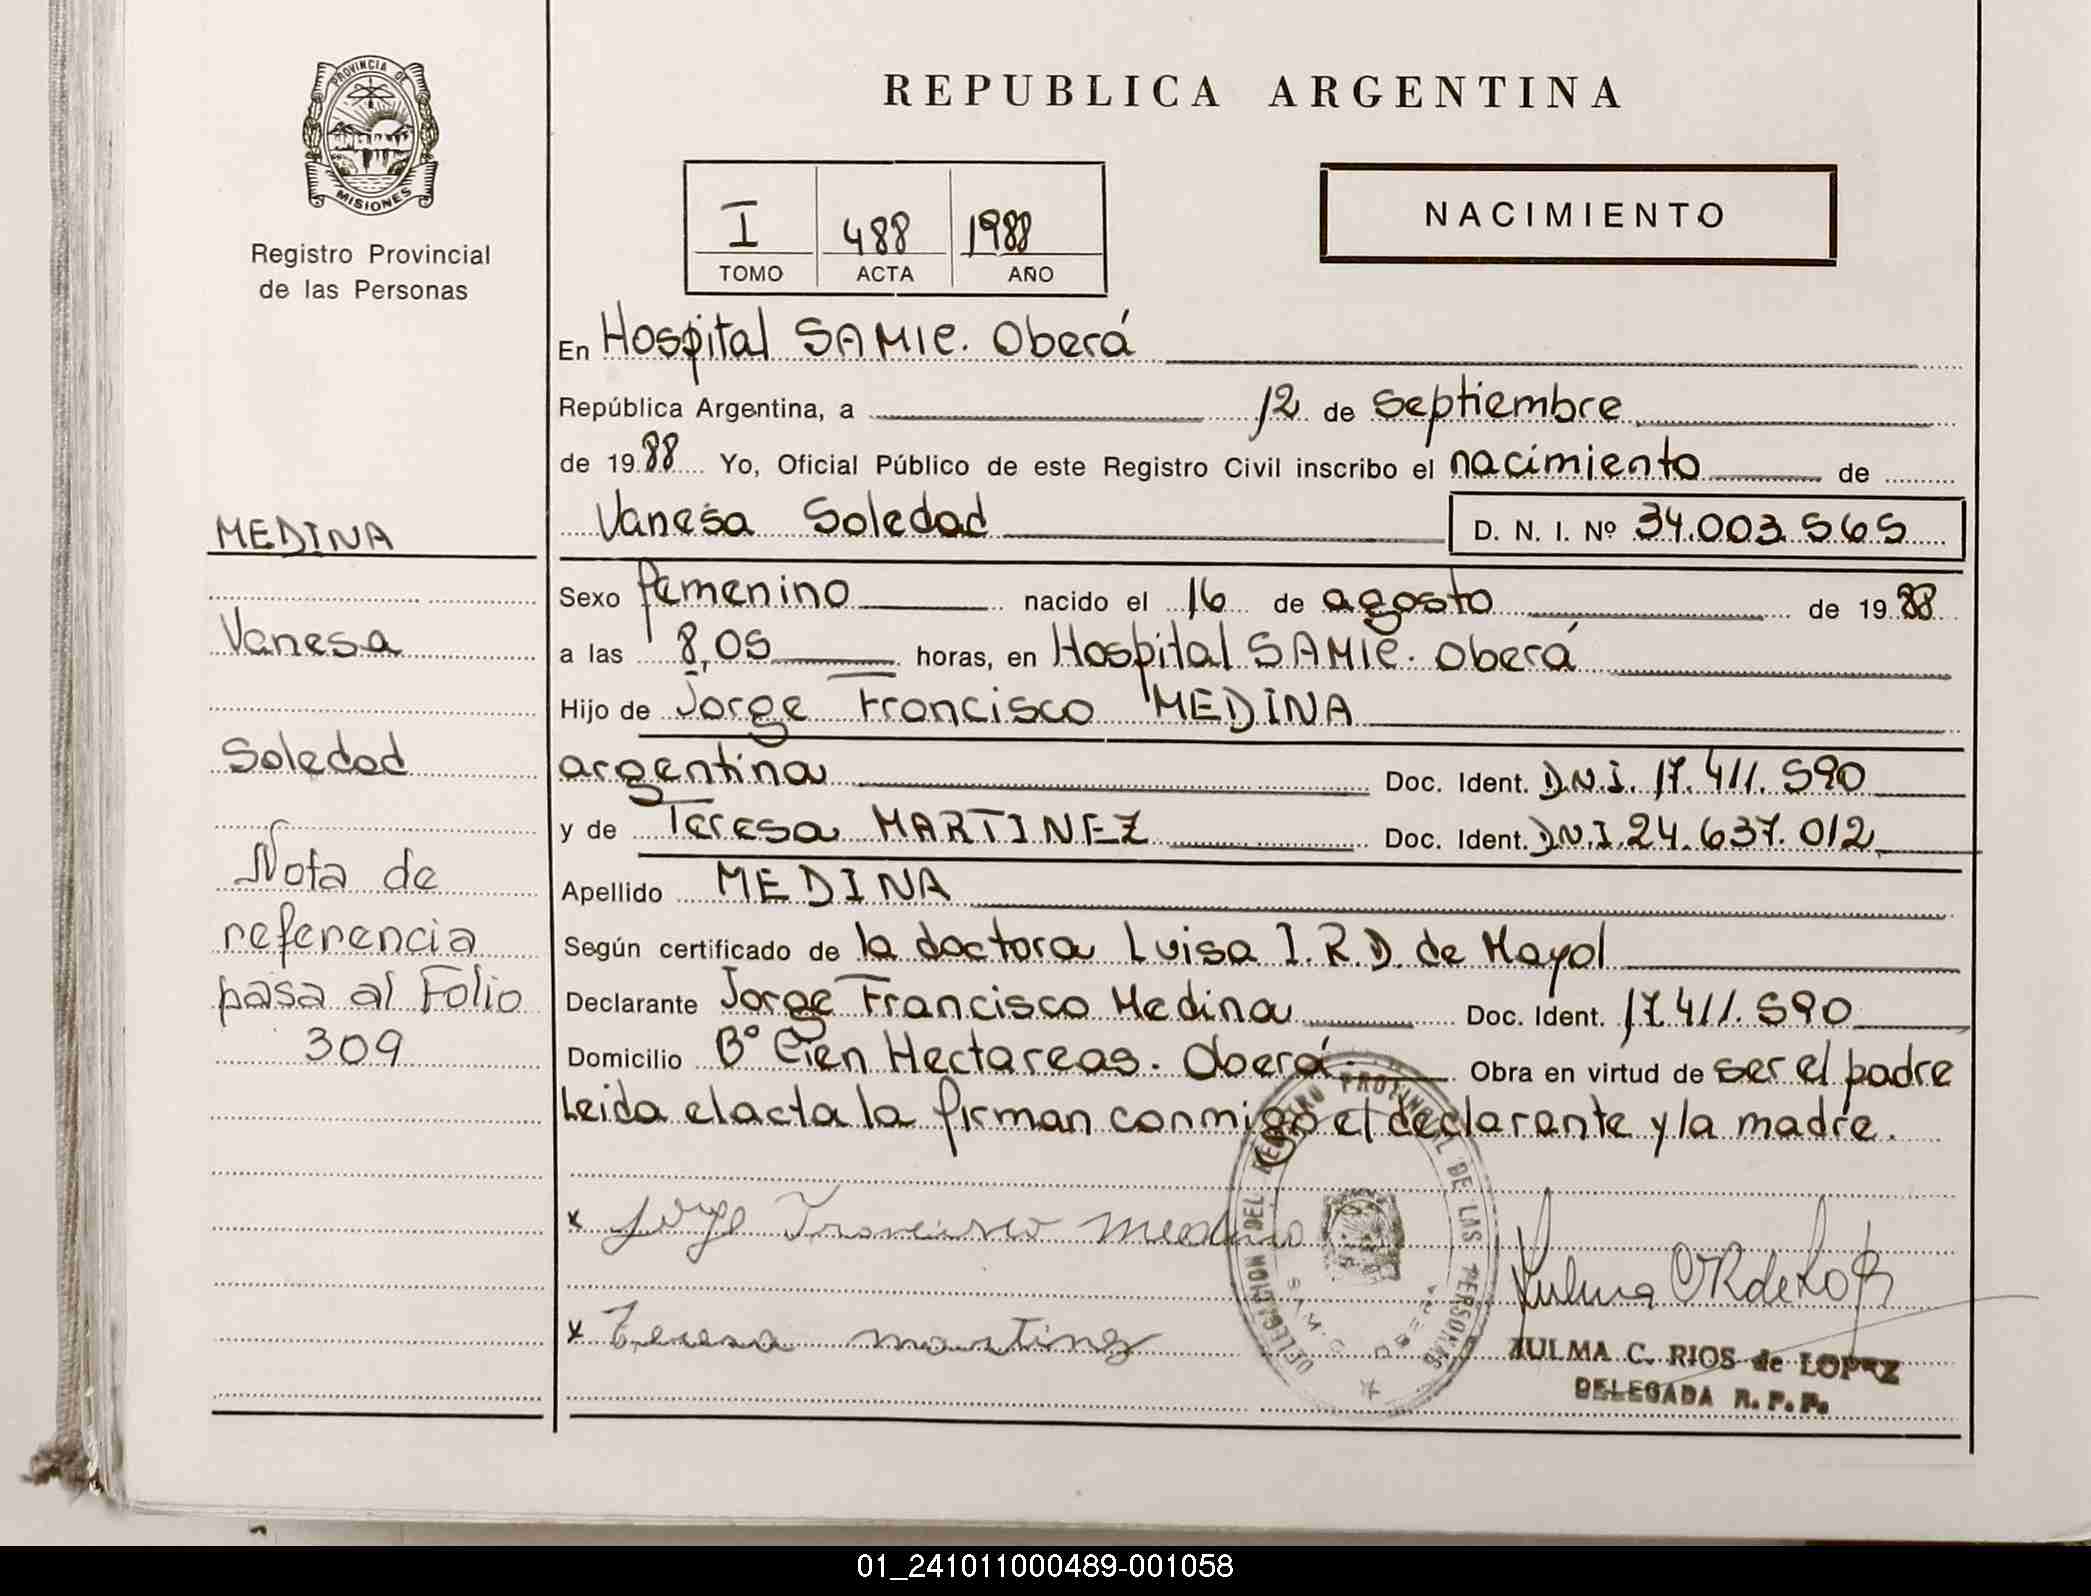 PROVINCIA DE
MISIONES
Registro Provincial
de las Personas
MEDINA
Vanesa
Soledad
Nota de
referencia
pasa al Folio
309
REPUBLICA ARGENTINA
I 488 1988
TOMO ACTA AÑO
NACIMIENTO
En Hospital SAMIC. Oberá
República Argentina, a 12 de septiembre
de 1988 Yo, Oficial Público de este Registro Civil inscribo el nacimiento de
Vanesa Soledad D. N. I. Nº 34.003.565
Sexo femenino nacido el 16 de agosto de 1988
a las 8,05 horas, en Hospital SAMIC. Oberá
Hijo de Jorge Francisco MEDINA
argentina Doc. Ident. D.N.I. 17.411.590
y de Teresa MARTINEZ Doc. Ident. D.N.I. 24.637.012
Apellido MEDINA
Según certificado de la doctora Luisa I.R.D. de Mayol
Declarante Jorge Francisco Medina Doc. Ident. 17.411.590
Domicilio Bº Cien Hectareas. Oberá. Obra en virtud de ser el padre
Leida el acta la firman conmigo el declarante y la madre.
x Jorge Francisco Medina
x Teresa martinez
DELEGACION DEL REGISTRO PROVINCIAL DE LAS PERSONAS
Zulma C R de Lopez
ZULMA C. RIOS de LOPEZ
DELEGADA R. P. P.
01_241011000489-001058